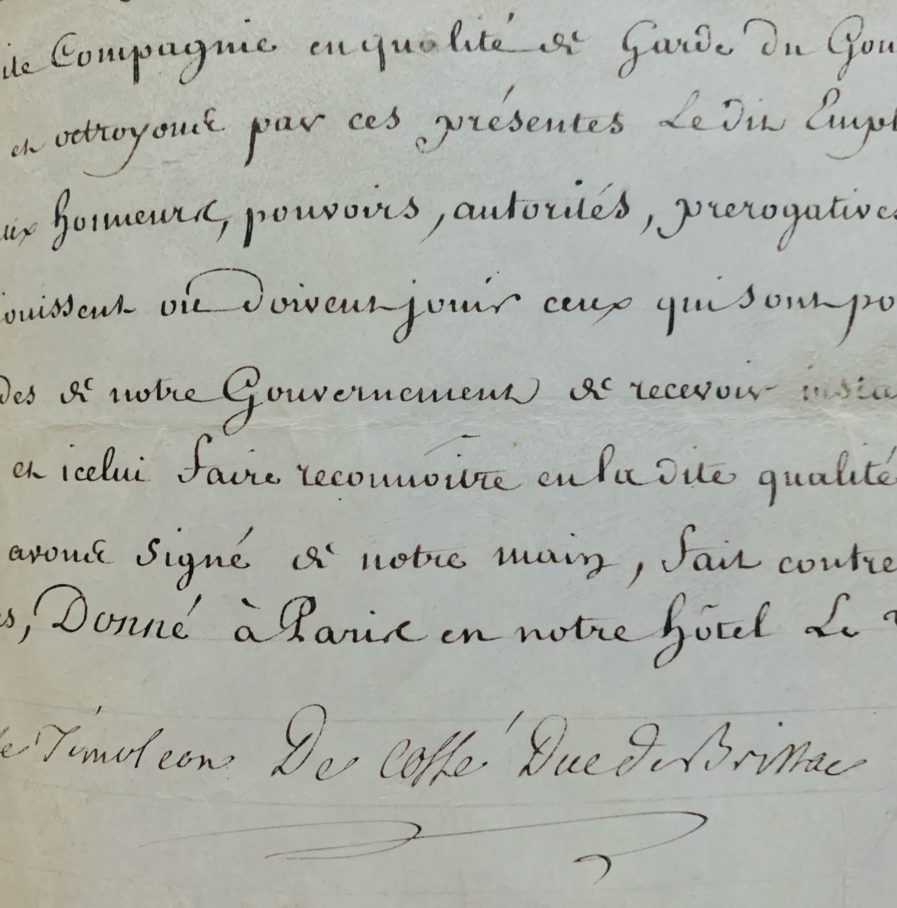 ite Compagnie en qualité de Garde du Gou
et octroyons par ces présentes Ledit Empl
ux honneurs, pouvoirs, autorités, prerogatives
jouissent où doivent jouir ceux qui sont po
des de notre Gouvernement de recevoir insta
et icelui faire reconnoitre en la dite qualité
avons signé de notre main, fait contre
s, Donné à Paris en notre hôtel Le
Timoleon De Cossé Duc de Brissac